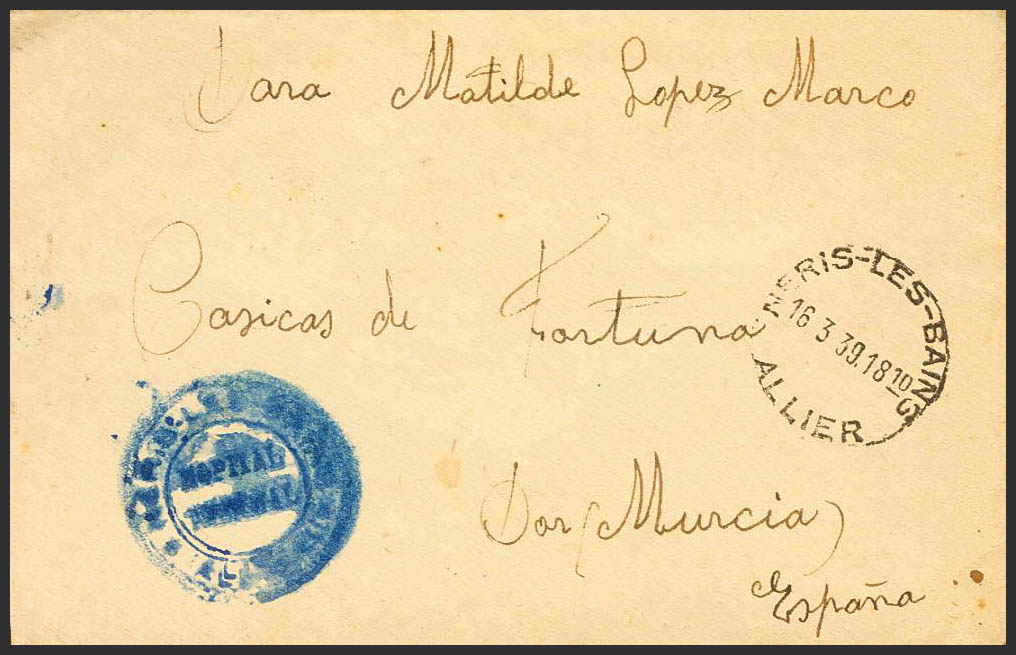 Para Matilde Lopez Marco
Casicas de Fortuna
NERIS-LES-BAINS
16 3 39.18 10
ALLIER
HOPITAL
THERMAL
Por (Murcia)
España